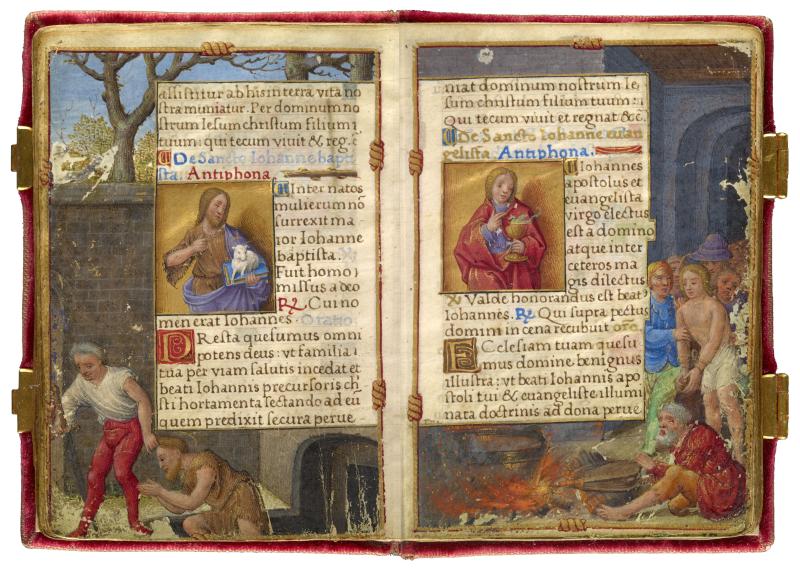 assistitur ab his in terra vita no
stra muniatur. Per dominum no
strum Iesum christum filium
tuum: qui tecum viuit & reg. &
De Sancto Iohanne bapti
sta. Antiphona.
Inter natos
mulierum nō
surrexit ma
ior Iohanne
baptista.
Fuit homo
missus a deo
℟. Cui no
men erat Iohannes. Oratio.
PResta quesumus omni
potens deus: vt familia
tua per viam salutis incedat et
beati Iohannis precursoris chri
sti hortamenta sectando ad eū
quem predixit secura perue
niat dominum nostrum Ie
sum christum filium tuum:
Qui tecum viuit et regnat &c.
De Sancto Iohanne euan
gelista. Antiphona.
Iohannes
apostolus et
euangelista
virgo electus
est a domino
atque inter
ceteros ma
gis dilectus
℣ Valde honorandus est beat9
Iohannes. ℟. Qui supra pectus
domini in cena recubuit oro.
ECclesiam tuam quesu
mus domine benignus
illustra: vt beati Iohannis apo
stoli tui & euangeliste illumi
nata doctrinis ad dona perue